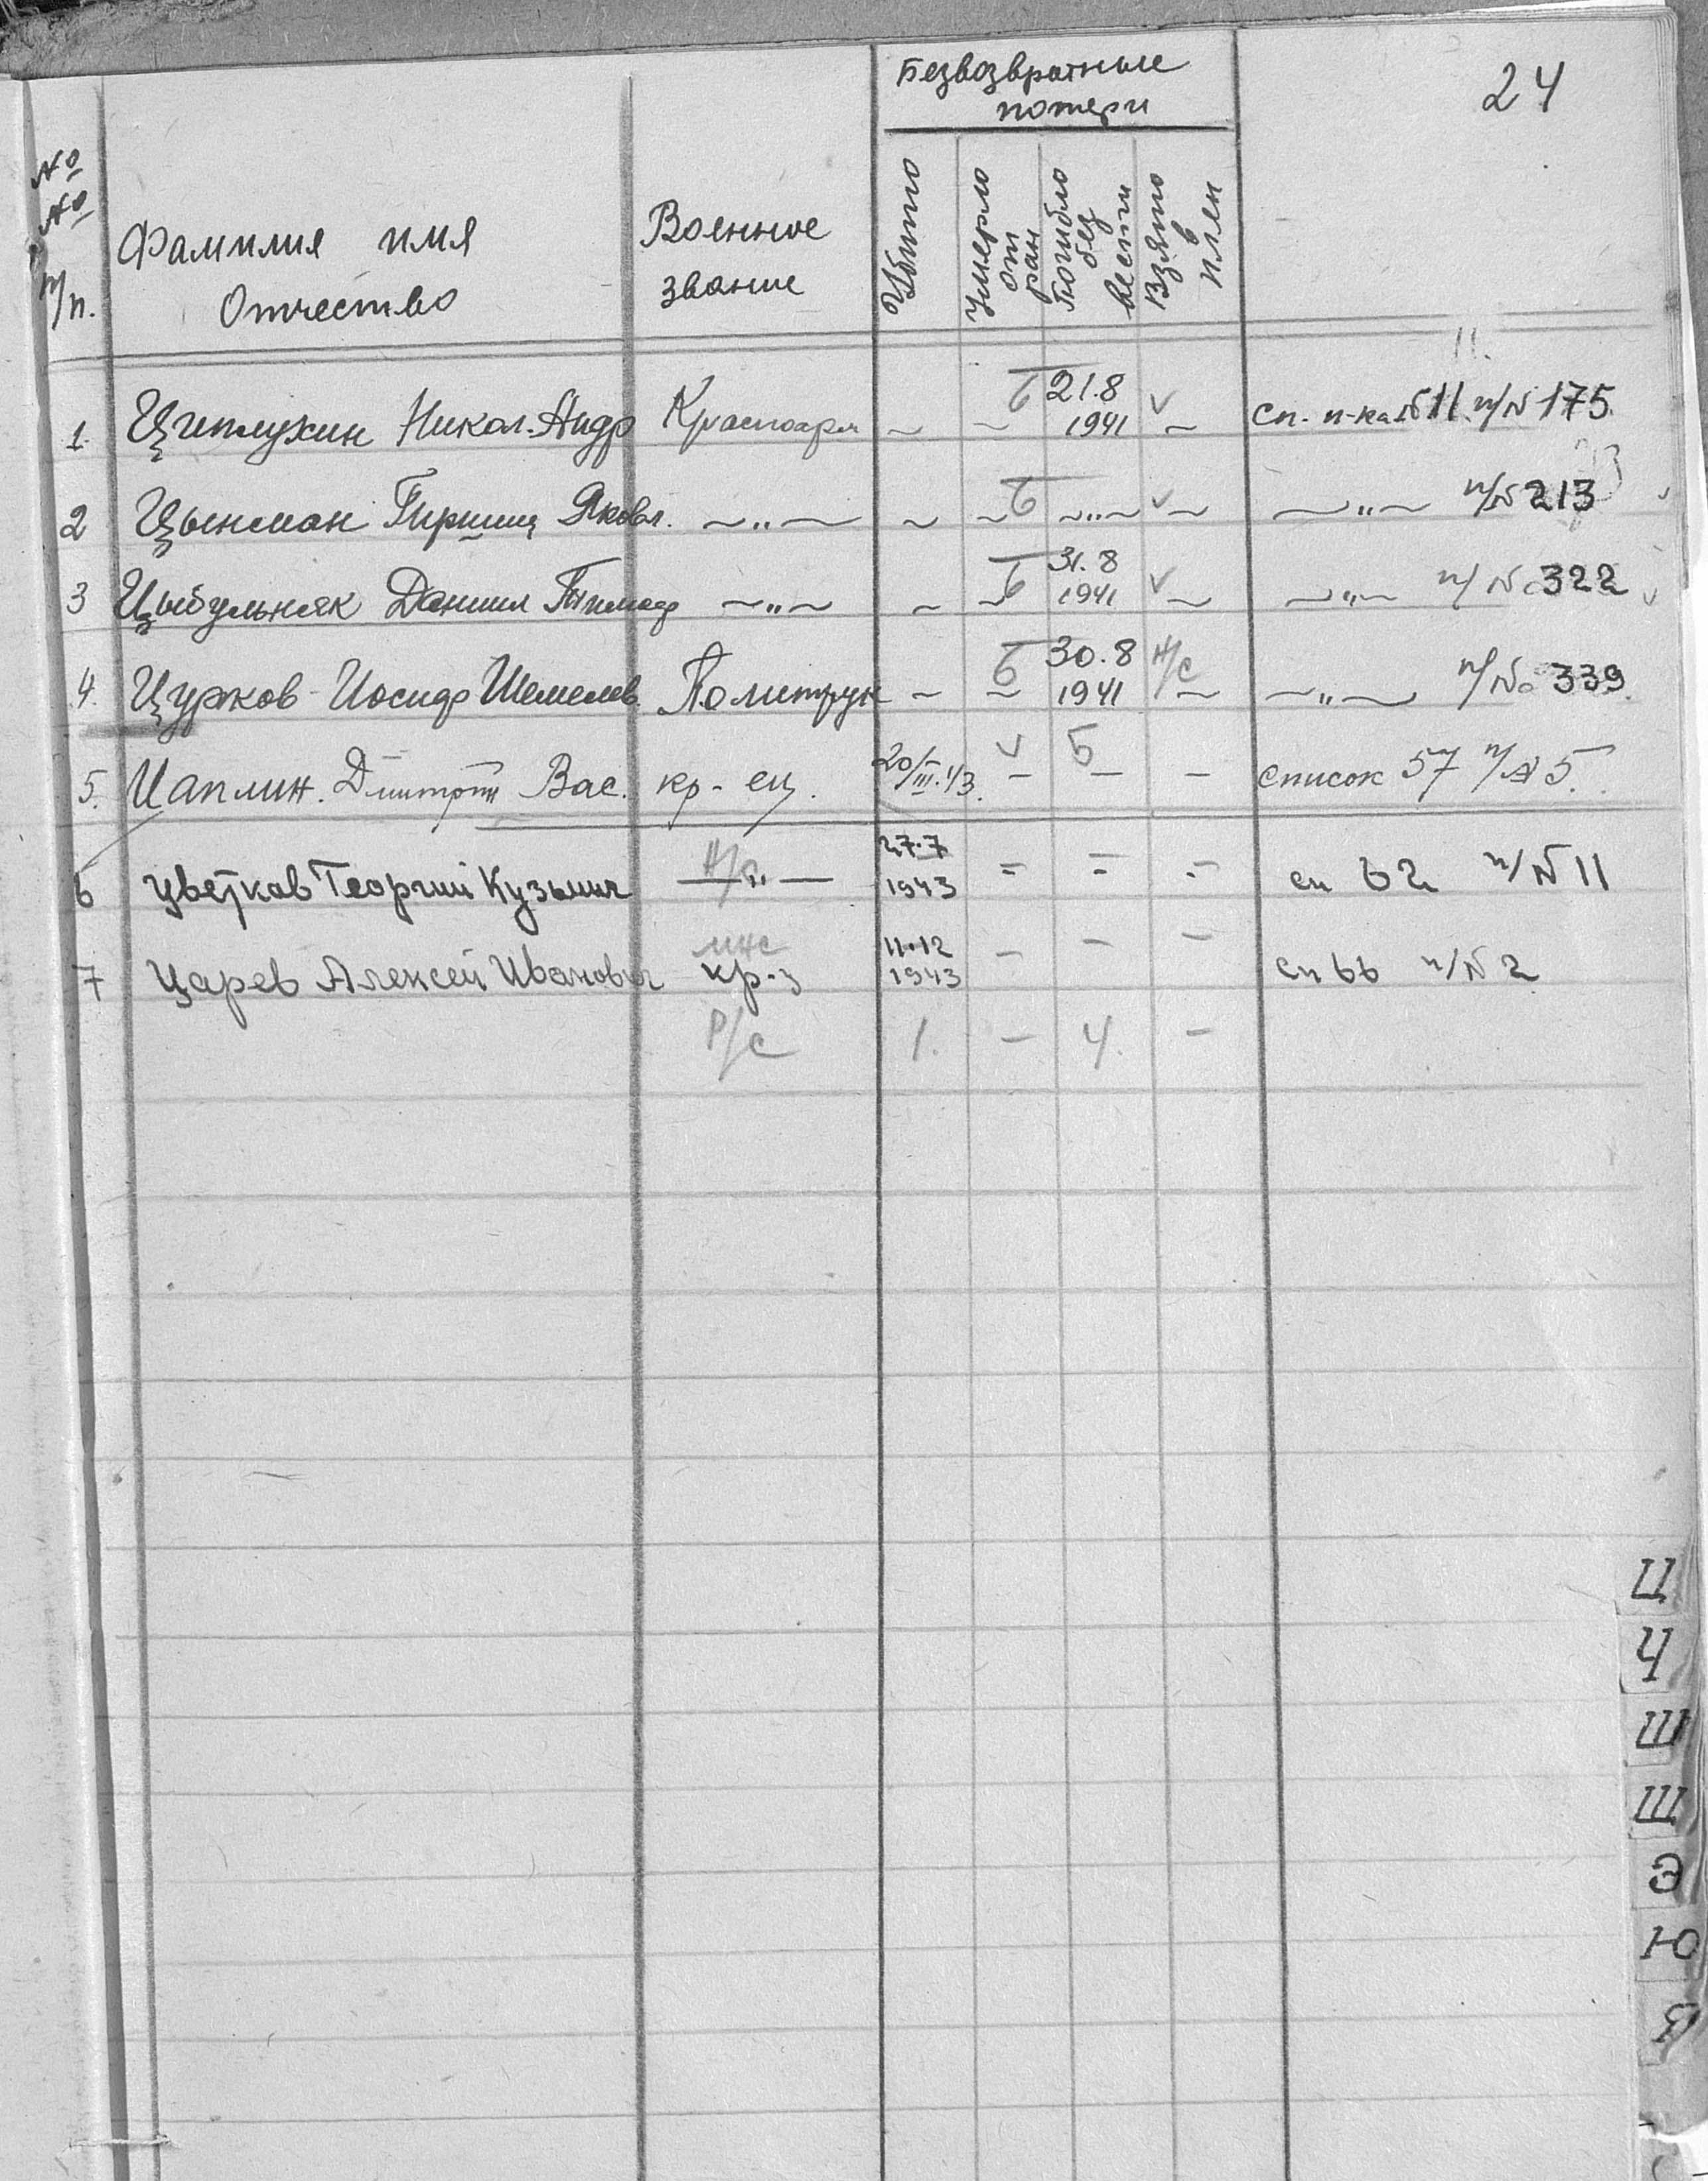 24
Безвозвратные
потери
№
№
п/п.
Фамилия имя
Отчество
Военное
звание
Убито
Умерло
от
ран
Погибло
без
вести
Взято
в
плен
1. Николай Андр Красноарм ~ ~ Б 21.8 1941 v ~ Сп. п-ка № 11 п/№ 175
2 Цынман Гирший Яковл. ~„~ ~ ~ Б ~„~ v ~ ~„~ п/№ 213
3 Цыбульняк Даниил Тимоф ~„~ ~ ~ Б 31.8 1941 v ~ ~„~ п/№ 322
4. Цурков Иосиф Шемелев Политрук ~ ~ Б 30.8 1941 Н/С ~ ~„~ п/№ 339
5. Цаплин. Дмитрий Вас. кр-ец. 20/III.43. v – Б – – список 57 п/№ 5.
6 Цветков Георгий Кузьмич —„— 27.7 1943 = = – сп 62 п/№ 11
7 Царев Алексей Иванович мнс кр-з 11.12 1943 – – – сп 66 п/№ 2
Р/С 1. – 4. –
Ц
Ч
Ш
Щ
Э
Ю
Я